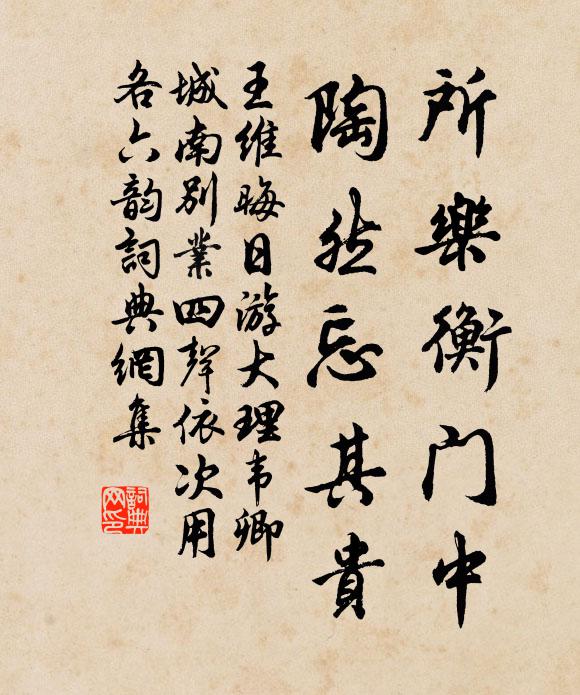 所樂衡门中
陶然忘其貴
王維晦日游大理韦卿
城南別業四聲依次用
各六韵詞典網集
詞典
网印